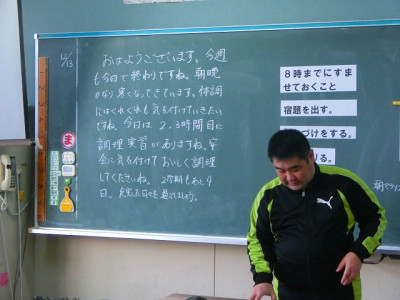 12/13
おはようございます。今週
も今日で終わりですね。朝晩
かなり寒くなってきています。体調
にはくれぐれも気を付けていきたい
ですね。今日は2.3時間目に
調理実習がありますね。安
全に気を付けておいしく調理
してくださいね。2学期もあと9
日。充実した日々を過ごしましょう。
8時までにすま
せておくこと
宿題を出す。
づけをする。
る。
ま
PUMA